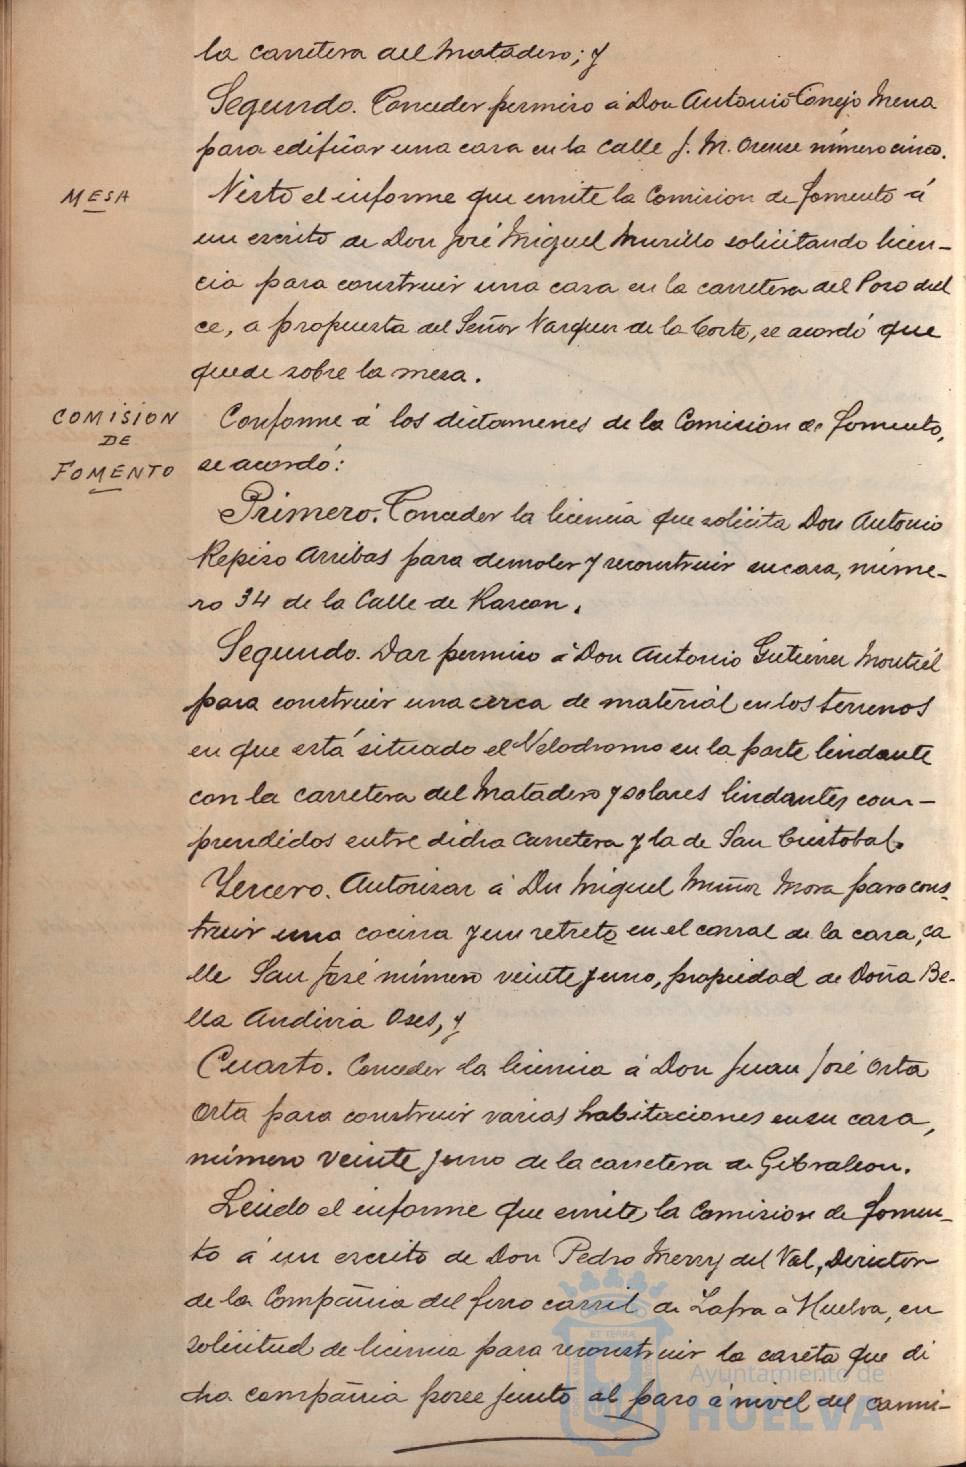 la carretera del Matadero; y
Segundo. Conceder permiso á Don Antonio Conejo Mena
para edificar una casa en la Calle J. M. Orense número cinco.
MESA
Visto el informe que emite la Comision de fomento á
un escrito de Don José Miguel Murillo solicitando licen-
cia para construir una casa en la carretera del Pozo dul
ce, a propuesta del Señor Vazquez de la Corte, se acordó que
quede sobre la mesa.
COMISION
DE
FOMENTO
Conforme á los dictamenes de la Comision de fomento,
se acordó:
Primero. Conceder la licencia que solicita Don Antonio
Repiso Arribas para demoler y reconstruir su casa, núme-
ro 34 de la Calle de Rascon.
Segundo. Dar permiso á Don Antonio Gutierrez Montiel
para construir una cerca de material en los terrenos
en que está situado el Velodromo en la parte lindante
con la carretera del Matadero y solares lindantes com-
prendidos entre dicha Carretera y la de San Cristobal.
Tercero. Autorizar á Dn Miguel Muñoz Mora para cons-
truir una cocina y un retrete en el corral de la casa, ca
lle San José número veinte y uno, propiedad de Doña Be-
lla Andivia Oses, y
Cuarto. Conceder la licencia á Don Juan José Orta
Orta para construir varias habitaciones en su casa,
número veinte y uno de la carretera de Gibraleon.
Leido el informe que emite la Comision de fomen-
to á un escrito de Don Pedro Merry del Val, Director
de la Compañia del ferro carril de Zafra á Huelva, en
solicitud de licencia para reconstruir la caseta que di
cha compañia posee junto al paso á nivel del cami-
ET TERRA
Ayuntamiento de
HUELVA